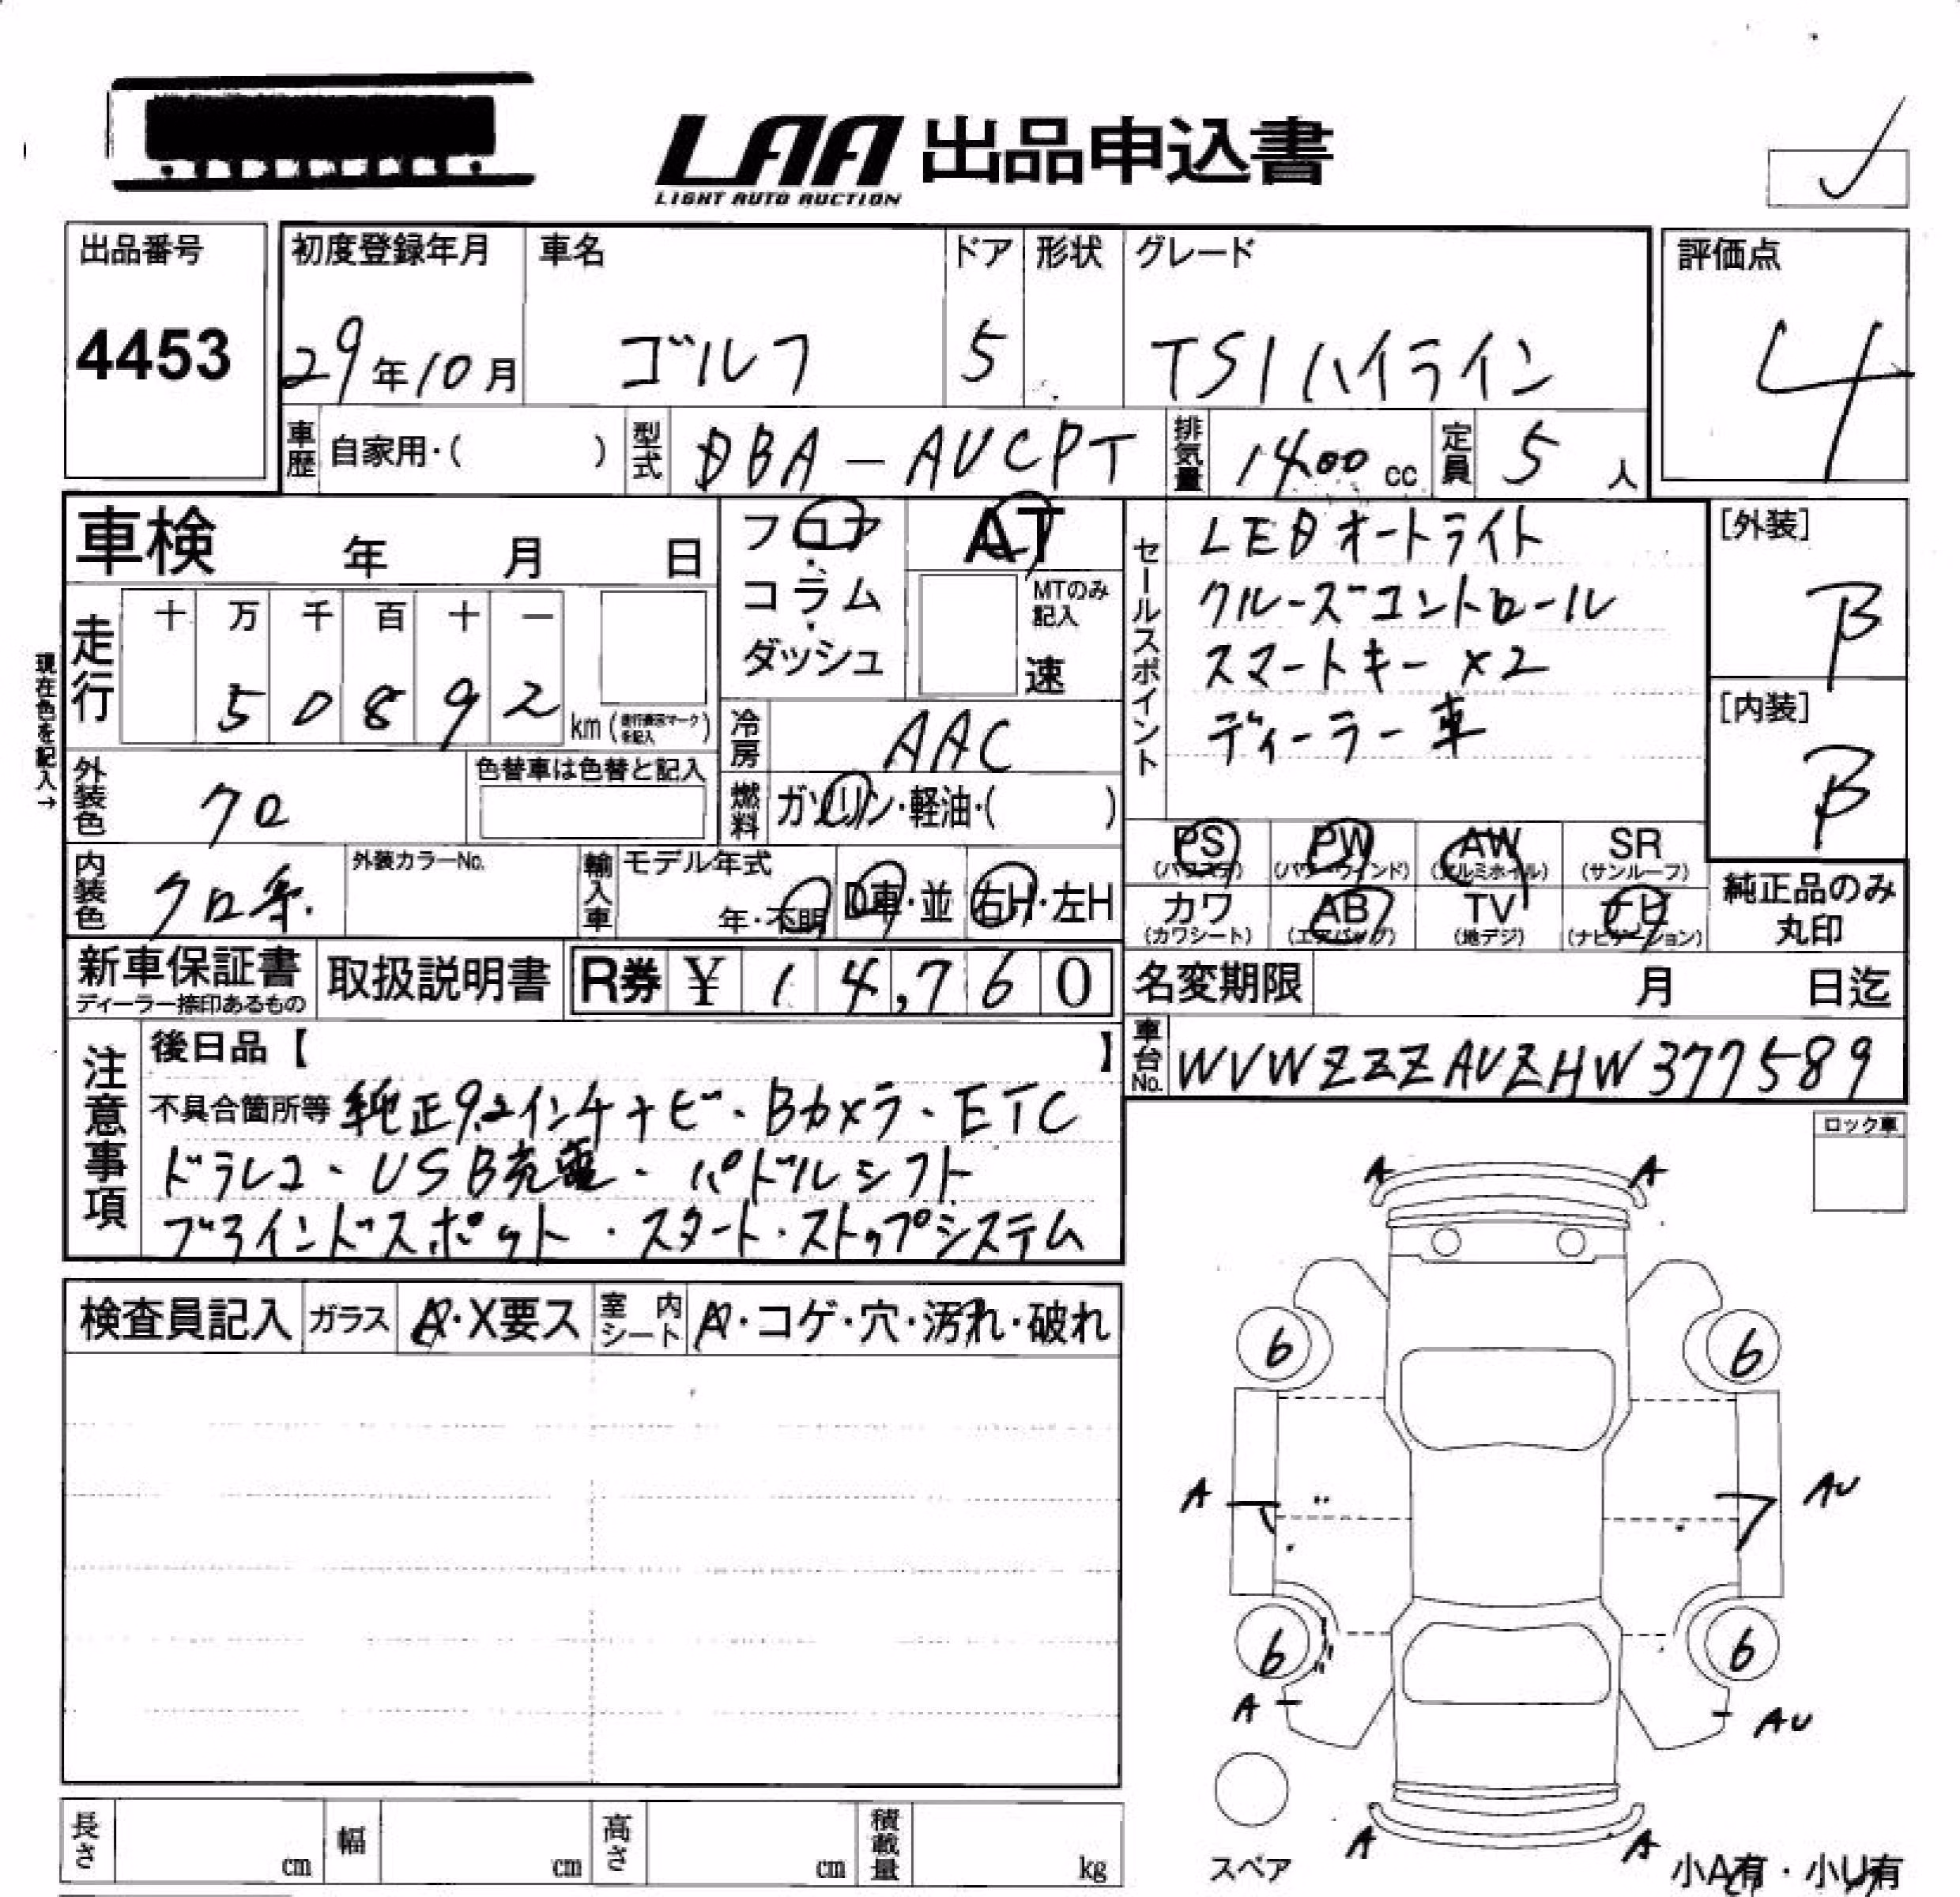 LAA 出品申込書
LIGHT AUTO AUCTION
出品番号 初度登録年月 車名 ドア 形状 グレード 評価点
4453 29年10月 ゴルフ 5 TSIハイライン 4
車歴 自家用・( ) 型式 DBA-AUCPT 排気量 1400 cc 定員 5 人
車検 年 月 日
フロア
コラム
ダッシュ
AT
MTのみ
記入
速
セールスポイント
LEDオートライト
クルーズコントロール
スマートキー ×2
ディーラー車
[外装]
B
[内装]
B
現在色を記入→
走行 十 万 千 百 十 一
5 0 8 9 2 km (走行表示マークを記入)
冷房 AAC
外装色 クロ 色替車は色替と記入
燃料 ガソリン・軽油・( )
PS PW AW SR
(パワステ) (パワーウィンド) (アルミホイル) (サンルーフ)
カワ AB TV ナビ
(カワシート) (エアバッグ) (地デジ) (ナビゲーション)
純正品のみ
丸印
内装色 クロ系 外装カラーNo. 輸入車 モデル年式
年・不明 D車・並 右H・左H
新車保証書 取扱説明書 R券 ¥ 1 4,7 6 0
ディーラー捺印あるもの
名変期限 月 日迄
車台No. WVWZZZAUZHW377589
注意事項
後日品【 】
不具合箇所等 純正9.2インチナビ・Bカメラ・ETC
ドラレコ・USB充電・パドルシフト
ブラインドスポット・スタート・ストップシステム
ロック車
検査員記入 ガラス A・X要ス 室内シート A・コゲ・穴・汚れ・破れ
A A
6 6
A AU
6 6
A AU
A A
スペア
小A有・小U有
長さ cm 幅 cm 高さ cm 積載量 kg